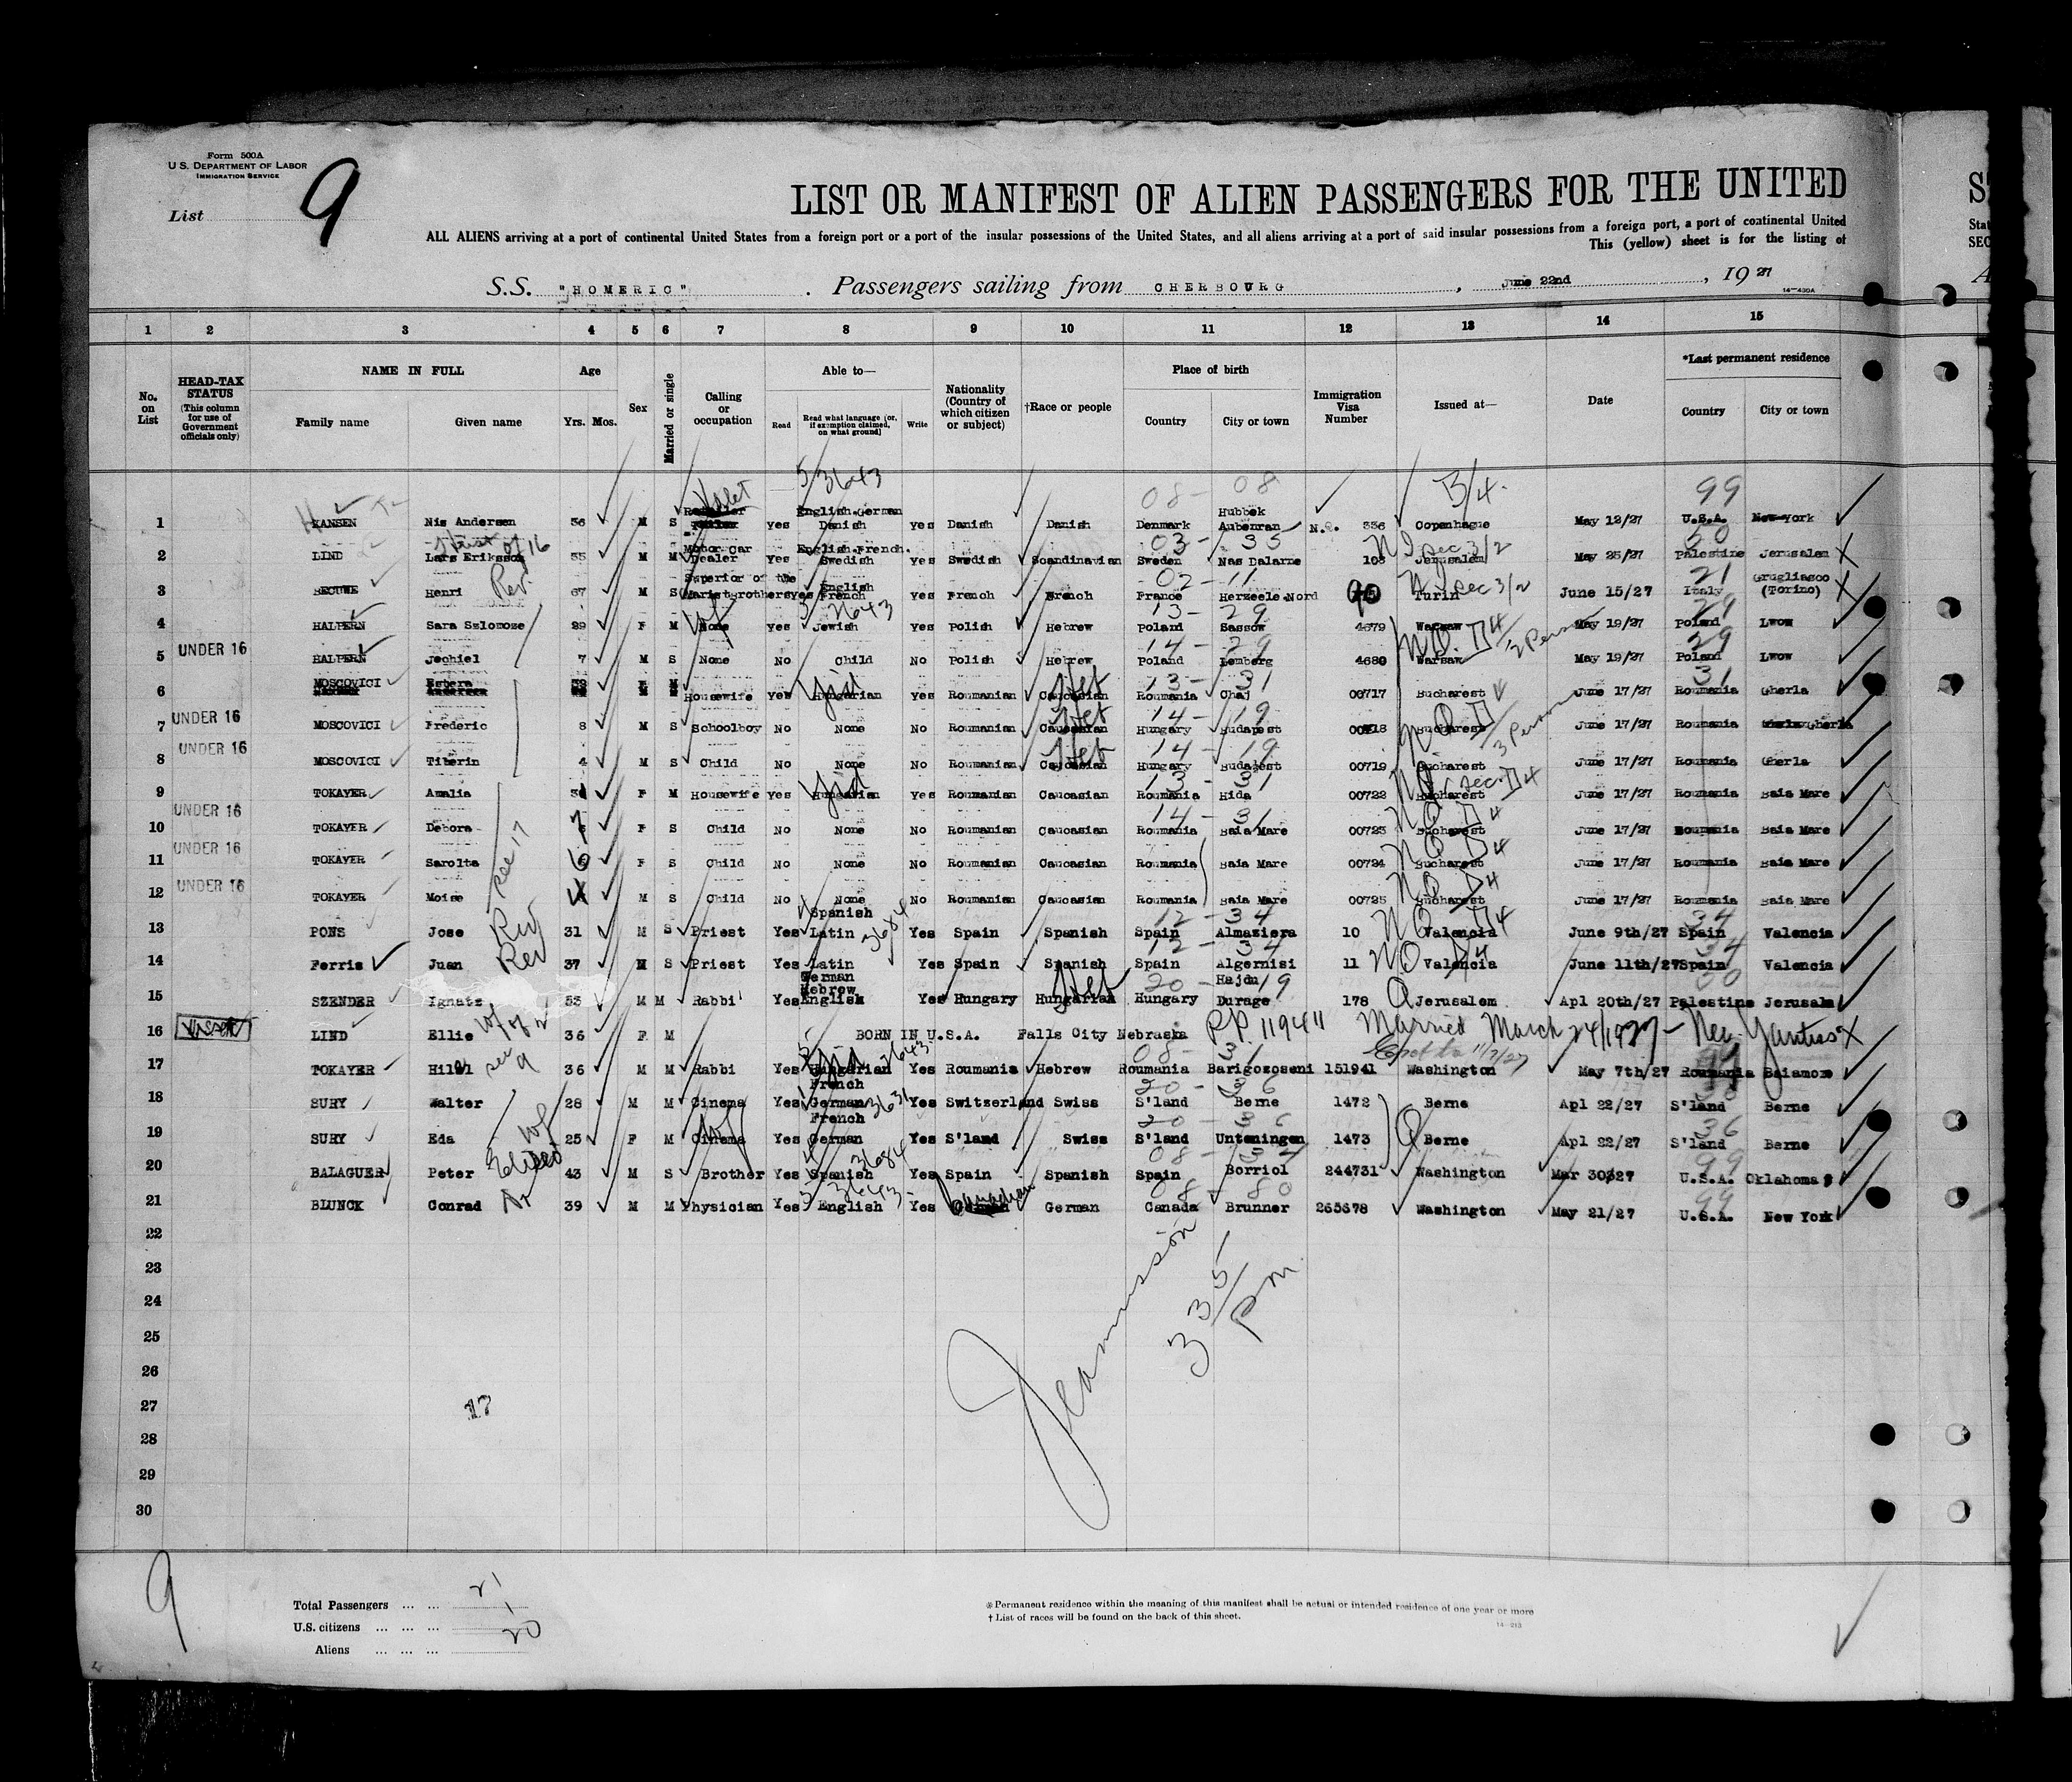 Form 500A
U S. DEPARTMENT OF LABOR
IMMIGRATION SERVICE
List 9
LIST OR MANIFEST OF ALIEN PASSENGERS FOR THE UNITED
ALL ALIENS arriving at a port of continental United States from a foreign port or a port of the insular possessions of the United States, and all aliens arriving at a port of said insular possessions from a foreign port, a port of continental United
This (yellow) sheet is for the listing of
S.S. "HOMERIC" . Passengers sailing from CHERBOURG , June 22nd , 19 27
14-430A
1 2 3 4 5 6 7 8 9 10 11 12 13 14 15
No. on List
HEAD-TAX STATUS (This column for use of Government officials only)
NAME IN FULL
Family name Given name
Age
Yrs. Mos.
Sex
Married or single
Calling or occupation
Able to—
Read Read what language (or, if exemption claimed, on what ground) Write
Nationality (Country of which citizen or subject)
†Race or people
Place of birth
Country City or town
Immigration Visa Number
Issued at—
Date
*Last permanent residence
Country City or town
5 / 3643 08 - 08 B/4. 99
1 HANSEN Nis Andersen 36 M S Valet Yes English.German Danish Yes Danish Danish Denmark Hubbek Aubenran N.Q. 336 Copenhague May 12/27 U.S.A. New York
2 LIND Lars Eriksson Hus of 16 35 M M Motor car Dealer Yes English.French. Swedish Yes Swedish Scandinavian 03 - 35 Sweden Nas Dalarne 108 Jerusalem May 25/27 Palestine Jerusalem X
3 BECUWE Henri Rev. 67 M S Superior of the Marist Brothers Yes English French Yes French French 02 - 11 France Herzeele Nord Turin sec 3/2 June 15/27 21 Italy Grugliasco (Torino) X
4 HALPERN Sara Szlomoze 29 F M None Yes Jewish Yes Polish Hebrew 13 - 29 Poland Sassow 4679 Warsaw May 19/27 29 Poland Lwow
5 UNDER 16 HALPERN Jechiel 7 M S None No Child No Polish Hebrew 14 - 29 Poland Lemberg 4680 Warsaw 2 Persons May 19/27 29 Poland Lwow
6 MOSCOVICI Estera F M Housewife Yes Yid Hungarian Yes Roumanian Heb Caucasian 13 - 31 Roumania Chaj 00717 Bucharest June 17/27 31 Roumania Gherla
7 UNDER 16 MOSCOVICI Frederic 8 M S Schoolboy No None No Roumanian Heb Caucasian 14 - 19 Hungary Budapest 00718 Bucharest 3 Persons June 17/27 Roumania Gherla
8 UNDER 16 MOSCOVICI Tiberin 4 M S Child No None No Roumanian Heb Caucasian 14 - 19 Hungary Budapest 00719 Bucharest June 17/27 Roumania Gherla
9 TOKAYER Amalia F M Housewife Yes Yid Hungarian Yes Roumanian Caucasian 13 - 31 Roumania Hida 00722 Bucharest June 17/27 Roumania Baia Mare
10 UNDER 16 TOKAYER Debora 7 F S Child No None No Roumanian Caucasian 14 - 31 Roumania Baia Mare 00723 Bucharest June 17/27 Roumania Baia Mare
11 UNDER 16 TOKAYER Sarolta see 17 6 F S Child No None No Roumanian Caucasian Roumania Baia Mare 00724 Bucharest June 17/27 Roumania Baia Mare
12 UNDER 16 TOKAYER Moise 4 M S Child No None No Roumanian Caucasian Roumania Baia Mare 00725 Bucharest June 17/27 Roumania Baia Mare
13 PONS Jose Rev 31 M S Priest Yes Spanish Latin 3684 Yes Spain Spanish 12 - 34 Spain Almaziera 10 Valencia June 9th/27 34 Spain Valencia
14 Ferris Juan Rev 37 M S Priest Yes Latin Yes Spain Spanish 12 - 34 Spain Algemisi 11 Valencia June 11th/27 34 Spain Valencia
15 SZENDER Ignatz 53 M M Rabbi Yes German Hebrew English Yes Hungary Heb Hungarian 20 - 19 Hungary Hajdu Durage 178 Q Jerusalem Apl 20th/27 Palestine Jerusalem
16 LIND Ellie wf of 2 36 F M BORN IN U.S.A. Falls City Nebraska P.P. 119411 Married March 24/1927 - Nee Yantiss X
17 TOKAYER Hilel see 9 36 M M Rabbi Yes Yid Hungarian 3643 Yes Roumania Hebrew 08 - 31 Roumania Barigozoseni 151941 Washington May 7th/27 Roumania Baiamore
18 SURY Walter 28 M M Cinema Yes French German 3631 Yes Switzerland Swiss 20 - 36 S'land Berne 1472 Berne Apl 22/27 S'land Berne
19 SURY Eda wf 25 F M wf Cinema Yes French German Yes S'land Swiss 20 - 36 S'land Unteningen 1473 Q Berne Apl 22/27 36 S'land Berne
20 BALAGUER Peter Eliseo 43 M S Brother Yes Spanish 3684 Yes Spain Spanish 08 - 34 Spain Borriol 244731 Washington Mar 30/27 99 U.S.A. Oklahoma
21 BLUNCK Conrad Dr 39 M M Physician Yes 5 - 3643 - English Yes Canadian German 08 - 80 Canada Brunner 265678 Washington May 21/27 99 U.S.A. New York
22
23
24
25
26
27
28
29
30
17
Jeannisson
3 35/ pm
9
Total Passengers ... ... 21
U.S. citizens ... ... ... 1
Aliens ... ... ... 20
* Permanent residence within the meaning of this manifest shall be actual or intended residence of one year or more
† List of races will be found on the back of this sheet.
14-213